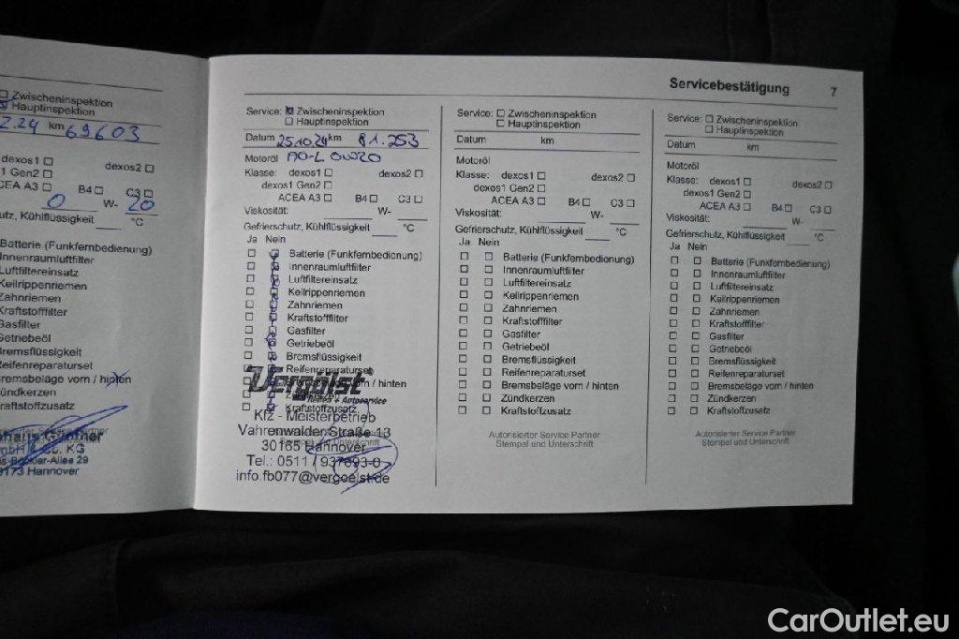 Zwischeninspektion
Hauptinspektion
2.24 km 69603
dexos1 dexos2
Gen2
ACEA A3 B4 C3
0 W- 20
schutz, Kühlflüssigkeit °C
Batterie (Funkfernbedienung)
Innenraumluftfilter
Luftfiltereinsatz
Keilrippenriemen
Zahnriemen
Kraftstofffilter
Gasfilter
Getriebeöl
Bremsflüssigkeit
Reifenreparaturset
Bremsbeläge vorn / hinten
Zündkerzen
Kraftstoffzusatz
Service Partner
Günther
GmbH & Co. KG
-Allee 29
Hannover
Servicebestätigung 7
Service: Zwischeninspektion
Hauptinspektion
Datum 25.10.24 km 81.253
Motoröl
Klasse: dexos1 dexos2
dexos1 Gen2
ACEA A3 B4 C3
Viskosität: W-
Gefrierschutz, Kühlflüssigkeit °C
Ja Nein
Batterie (Funkfernbedienung)
Innenraumluftfilter
Luftfiltereinsatz
Keilrippenriemen
Zahnriemen
Kraftstofffilter
Gasfilter
Getriebeöl
Bremsflüssigkeit
Reifenreparaturset
vorn / hinten
Kraftstoffzusatz
Vergölst
Reifen + Autoservice
Kfz - Meisterbetrieb
Vahrenwalder Straße 13
30165 Hannover
Tel.: 0511 / 937693-0
info.fb077@vergoelst.de
Service: Zwischeninspektion
Hauptinspektion
Datum km
Motoröl
Klasse: dexos1 dexos2
dexos1 Gen2
ACEA A3 B4 C3
Viskosität: W-
Gefrierschutz, Kühlflüssigkeit °C
Ja Nein
Batterie (Funkfernbedienung)
Innenraumluftfilter
Luftfiltereinsatz
Keilrippenriemen
Zahnriemen
Kraftstofffilter
Gasfilter
Getriebeöl
Bremsflüssigkeit
Reifenreparaturset
Bremsbeläge vorn / hinten
Zündkerzen
Kraftstoffzusatz
Autorisierter Service Partner
Stempel und Unterschrift
Service: Zwischeninspektion
Hauptinspektion
Datum km
Motoröl
Klasse: dexos1 dexos2
dexos1 Gen2
ACEA A3 B4 C3
Viskosität: W-
Gefrierschutz, Kühlflüssigkeit °C
Ja Nein
Batterie (Funkfernbedienung)
Innenraumluftfilter
Luftfiltereinsatz
Keilrippenriemen
Zahnriemen
Kraftstofffilter
Gasfilter
Getriebeöl
Bremsflüssigkeit
Reifenreparaturset
Bremsbeläge vorn / hinten
Zündkerzen
Kraftstoffzusatz
Autorisierter Service Partner
Stempel und Unterschrift
CarOutlet.eu